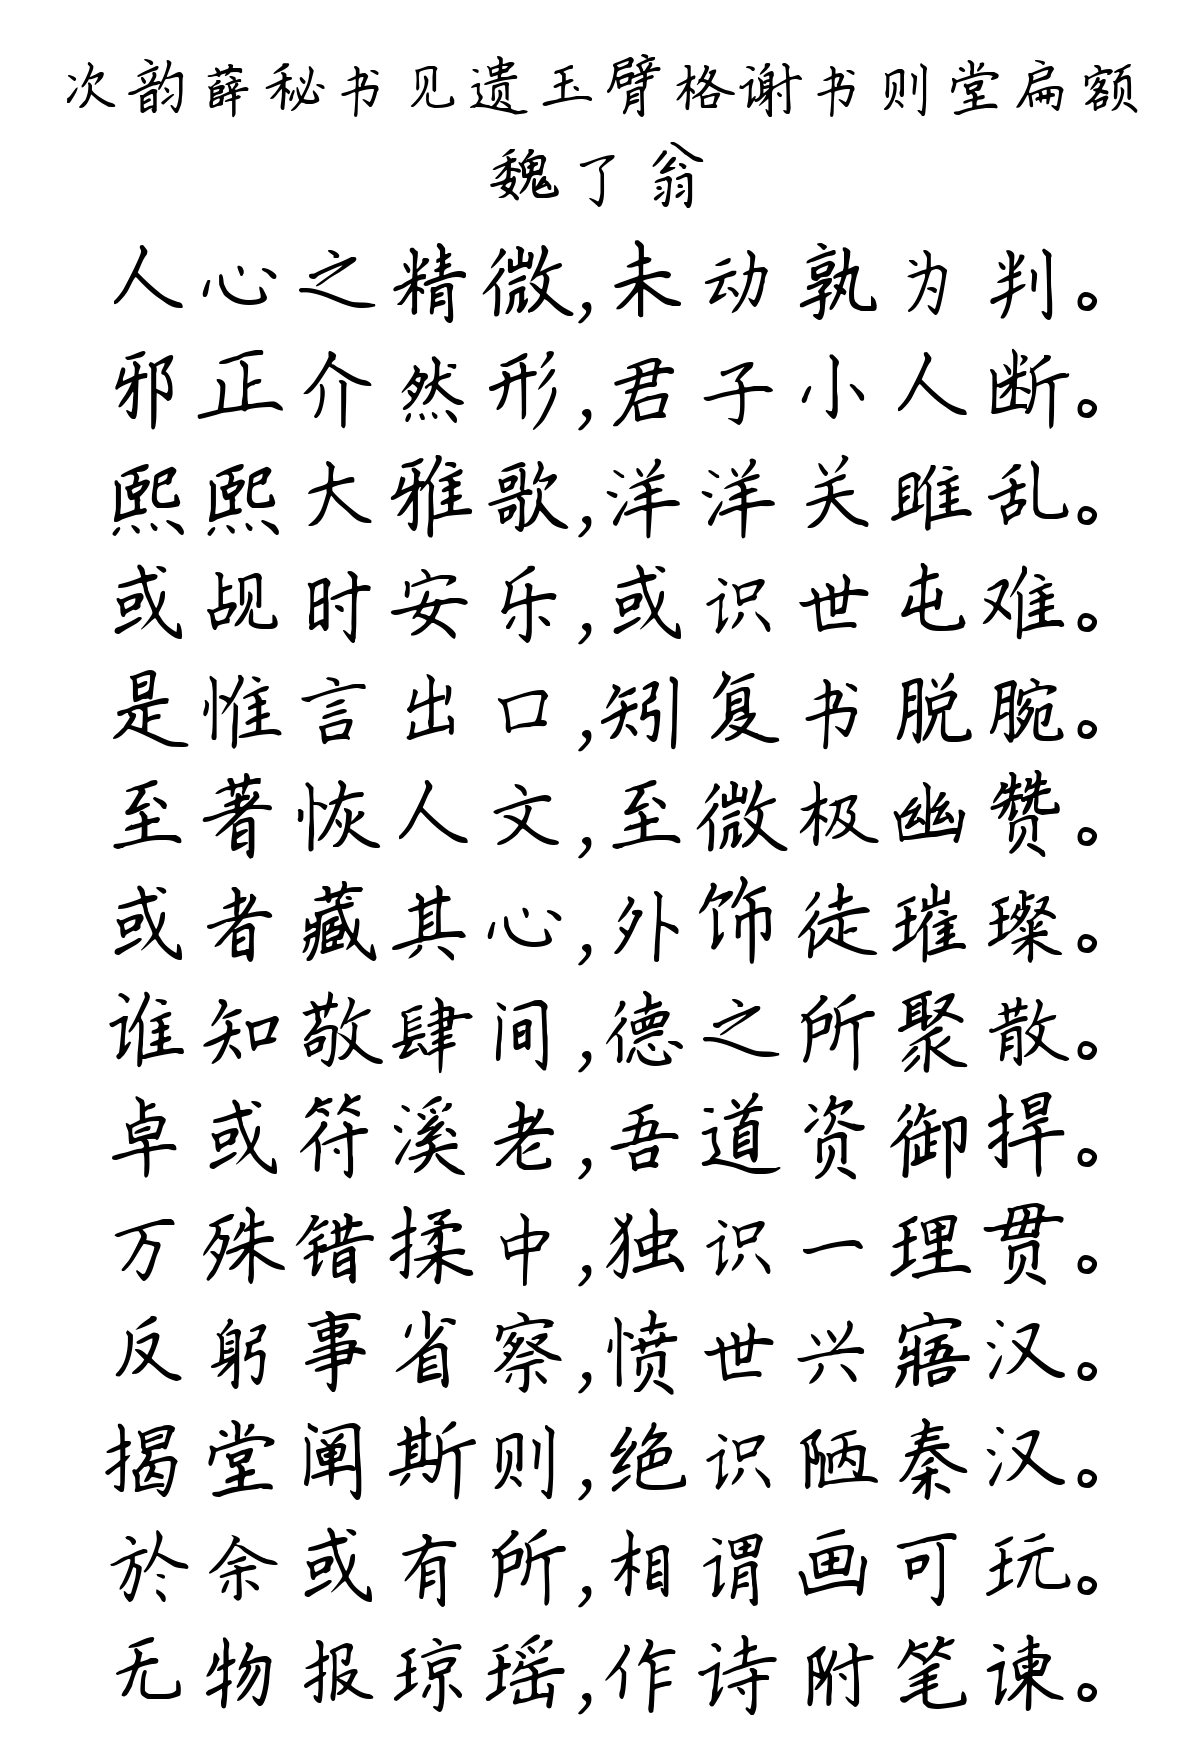 次韵薛秘书见遗玉臂格谢书则堂扁额
魏了翁
人心之精微,未动孰为判。
邪正介然形,君子小人断。
熙熙大雅歌,洋洋关雎乱。
或觇时安乐,或识世屯难。
是惟言出口,矧复书脱腕。
至著恢人文,至微极幽赞。
或者藏其心,外饰徒璀璨。
谁知敬肆间,德之所聚散。
卓或符溪老,吾道资御捍。
万殊错揉中,独识一理贯。
反躬事省察,愤世兴寤汉。
揭堂阐斯则,绝识陋秦汉。
於余或有所,相谓画可玩。
无物报琼瑶,作诗附笔谏。